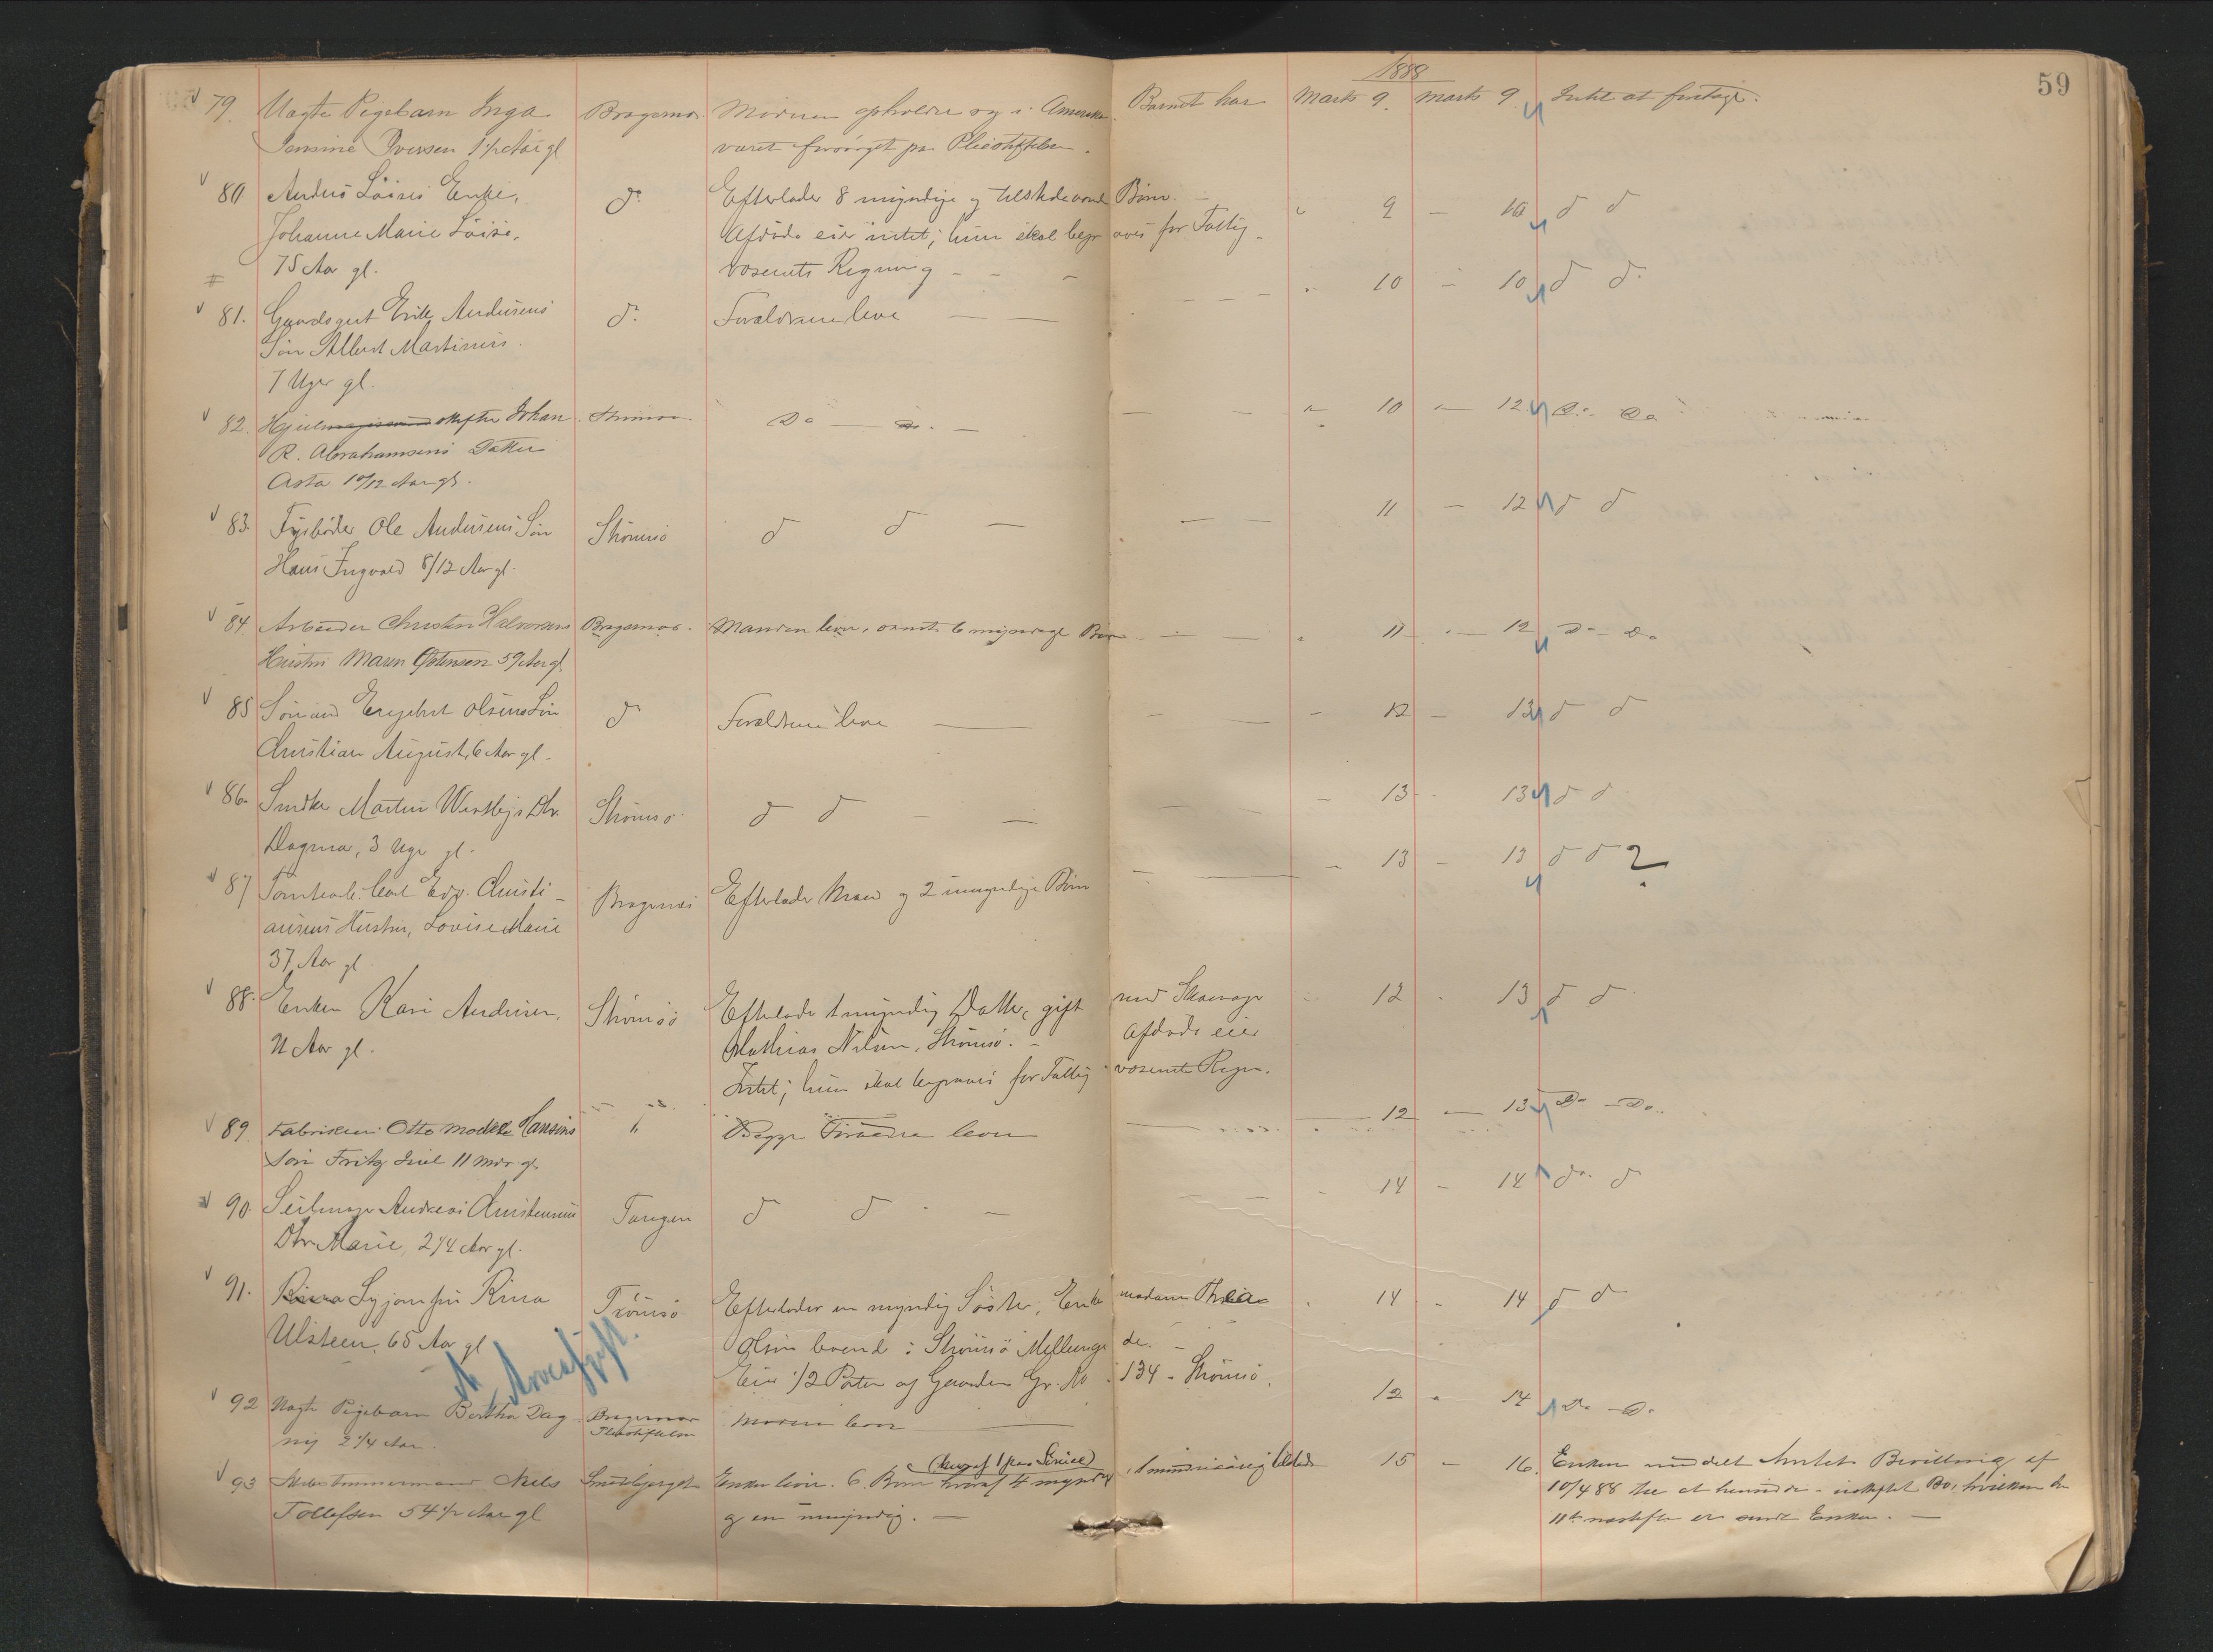 1888
59
79. Uægte Pigebarn Inga Bragernæs Moderen opholder sig i Amerika. Barnet har Marts 9. Marts 9 Intet at foretage.
Jensine Iversen 1 1/2 Aar gl været forsørget paa Pleiestiftelsen.
80 Anders Löises Enke, do Efterlader 8 myndige og tilstedeværende Børn. 9 - 10 d d
Johanne Marie Löise, Afdøde eier intet; hun skal begraves for Fattig-
75 Aar gl. væsenets Regning - 10 - 10 d d
81. Gaardsgut Erik Andersens do Forældrene leve
Søn Albert Martinius.
7 Uger gl.
82. Skifter Johan Strømsø Do - do - 10 - 12 Do Do
R. Abrahamsens Datter
Asta 10/12 Aar gl.
11 - 12 d d
83. Ole Andersens Søn Strømsø d d
Hans Ingvald 8/12 Aar gl.
84 Arbeider Christen Halvorsens Bragernæs. Manden lever, samt 6 myndige Børn 11 - 12 Do Do
Hustru Maren 59 Aar gl
85 Sømand Engebret Olsens Søn do Forældrene leve 12 - 13 d d
Christian August, 6 Aar gl.
86. Martin Westbys Dtr. Strømsø d d 13 - 13 d d
Dagmar, 3 Uger gl. 13 - 13 d d ?
87 Carl Edv. Christi- Bragernæs Efterlader Mand og 2 umyndige Børn
ansens Hustru, Lovise Marie
37 Aar gl.
88. Enken Kari Andersen, Strømsø Efterlader 1 myndig Datter, gift med Skomager 12 - 13 d d
71 Aar gl. Mathias Nilsen, Strømsø. - Afdøde eier
Intet; hun skal begraves for Fattigvæsenets Regn.
89 Otto Hansens " Begge Forældre lever 12 - 13 Do - Do.
Søn Fritz Emil 11 Mdr gl.
90. Seilmager Andreas Christensens Tangen d d 14 - 14 do. d
Dtr. Marie, 2 1/4 Aar gl.
91. Rina Syjomfru Rina Strømsø Efterlader en myndig Søster, Enke madam Thea 14 - 14 d d
Ulsteen, 65 Aar gl Olsen boende i Strømsø Mellemgade. -
Arveafgift. Eier 1/2 Parten af Gaarden Gr. No 134 - Strømsø.
92 Uægte Pigebarn Bertha Dag- Bragernæs Moderen lever 12 - 14 Do - Do.
ny 2 1/4 Aar. Pleiestiftelsen
(hvoraf 1 paa Reise)
93 Tømmermand Niels Enken lever. 6 Børn hvoraf 4 myndige, 1 mindreaarig 15 - 16. Enken meddelt Amtets Bevilling af
Tollefsen 54 1/2 Aar gl og en umyndig. - 10/4 88 til at hensidde i uskiftet Bo, hvilken den
11te næstefter er sendt Enken. -